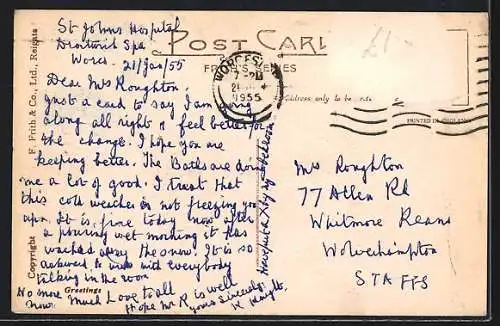 St Johns Hospital
Droitwich Spa
Worcs. 21/Jan/55
POST CARD
FRITH'S SERIES
WORCESTER
1955
£1-
Address only to be
PRINTED IN ENGLAND
Copyright F. Frith & Co., Ltd., Reigate
Dear Mrs Roughton,
Just a card to say I am
along all right & feel better for
the change. I hope you are
keeping better. The Baths are doing
me a lot of good. I trust that
this cold weather is not freezing you
up. It is fine today now after
a pouring wet morning it has
washed away the snow. It is so
awkward to write with everybody
talking in the room
Greetings
No more now. Much Love to all
Hope Mr R is well
yours sincerely
K Knight
Mrs Roughton
77 Allen Rd
Whitmore Reans
Wolverhampton
STAFFS